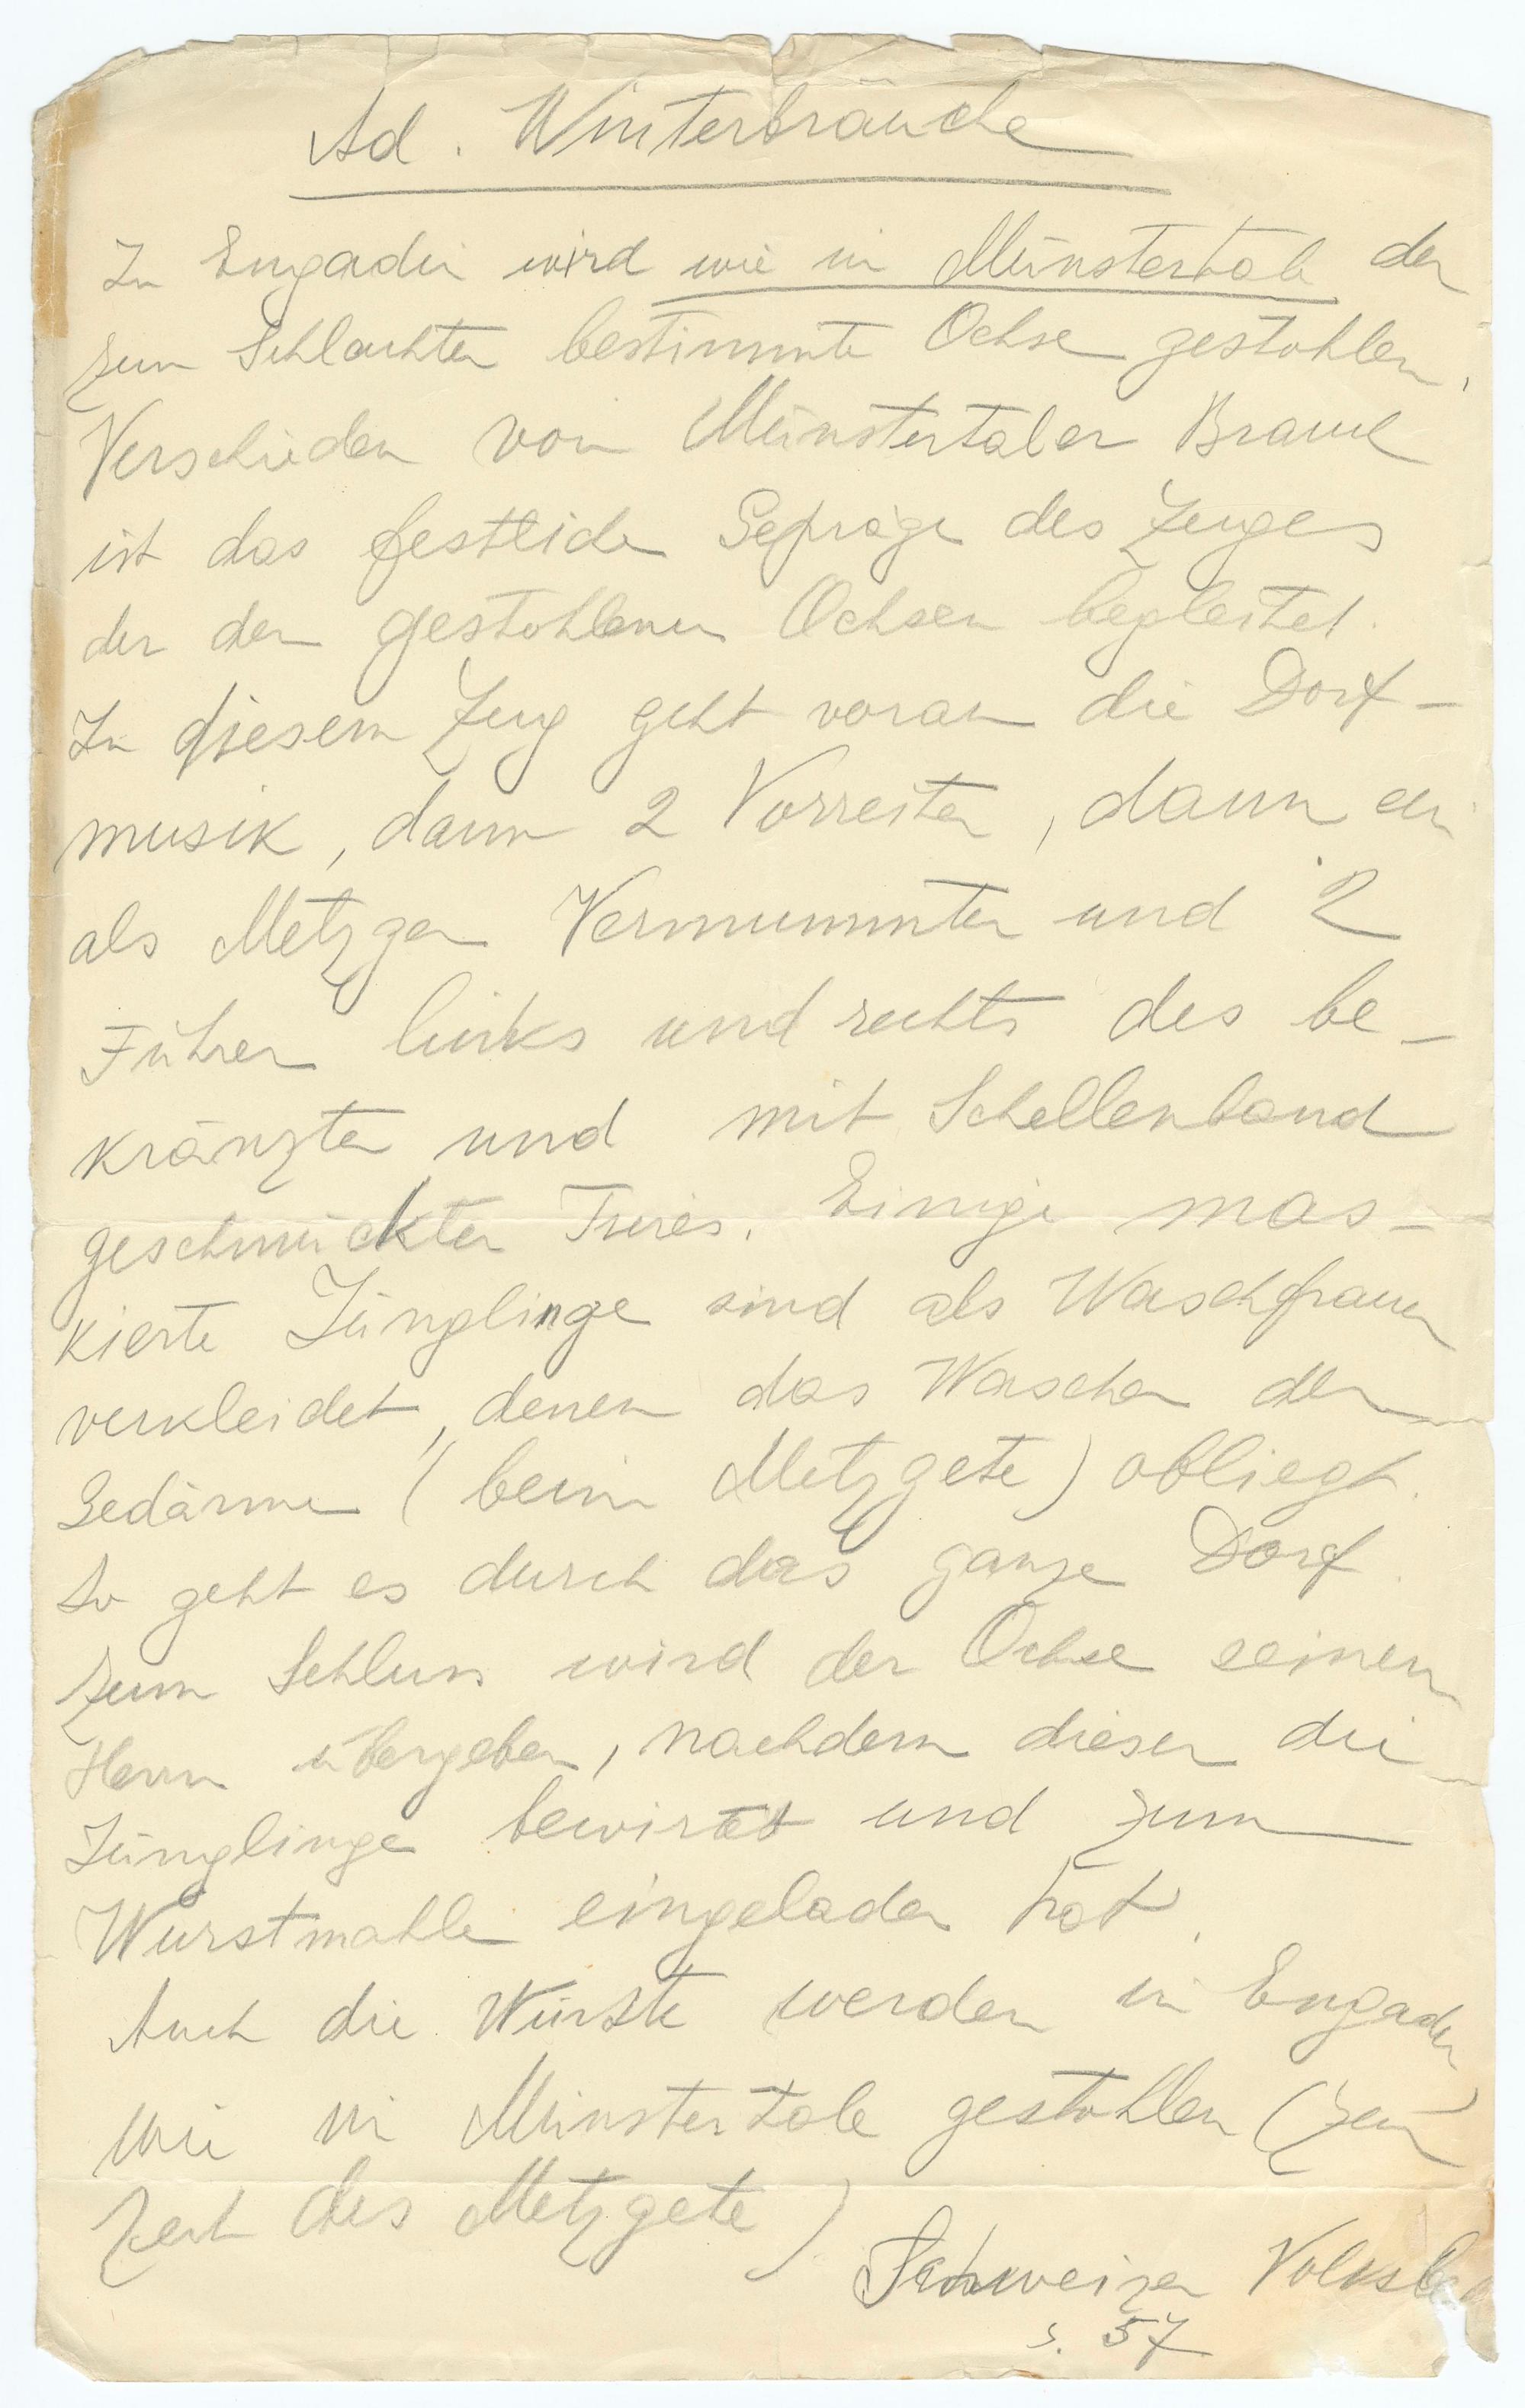 Ad. Winterbräuche
In Engadin wird wie in Münstertale der
zum Schlachten bestimmte Ochse gestohlen.
Verschieden vom Münstertaler Brauch
ist das festliche Gepräge des Zuges
der den gestohlenen Ochsen begleitet.
In diesem Zug geht voran die Dorf-
musik, dann 2 Vorreiter, dann ein
als Metzger Vermummter und 2
Führer links und rechts des be-
kränzten und mit Schellenband
geschmückten Tieres. Einige mas-
kierte Jünglinge sind als Waschfrauen
verkleidet, denen das Waschen der
Gedärme (beim Metzgete) obliegt.
So geht es durch das ganze Dorf.
Zum Schluss wird der Ochse seinem
Herrn übergeben, nachdem dieser die
Jünglinge bewirtet und zum
Wurstmahle eingeladen hat.
Auch die Würste werden in Engadin
wie in Münstertale gestohlen (zur
Zeit des Metzgete)
Schweizer
s. 57